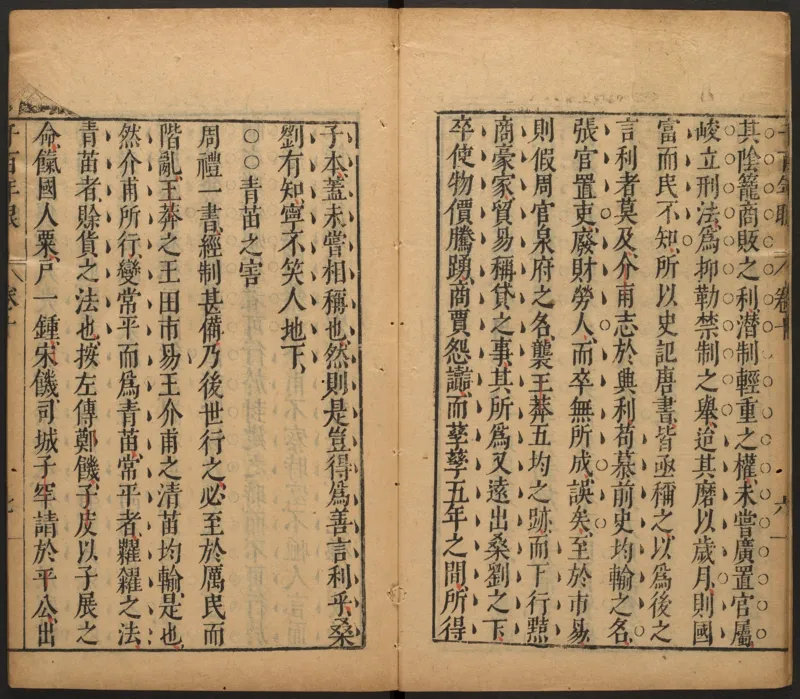 其陰籠商販之利潛制輕重之權未嘗廣置官屬
峻立刑法為抑勒禁制之舉迨其磨以歲月則國
富而民不知所以史記唐書皆亟稱之以為後之
言利者莫及介甫志於興利苟慕前史均輸之名
張官置吏廢財勞人而卒無所成誤矣至於市易
則假周官泉府之名襲王莽五均之跡而下行黠
商豪家貿易稱貸之事其所為又遠出桑劉之下
卒使物價騰踴商賈怨讟而孳孳五年之間所得
子本蓋未嘗相稱也然則是豈得為善言利乎桑
劉有知寧不笑人地下
○○青苗之害
周禮一書經制甚備乃後世行之必至於厲民而
階亂王莽之王田市易王介甫之清苗均輸是也
然介甫所行變常平而為青苗常平者糶糴之法
青苗者賒貨之法也按左傳鄭饑子皮以子展之
命餼國人粟戶一鍾宋饑司城子罕請於平公出